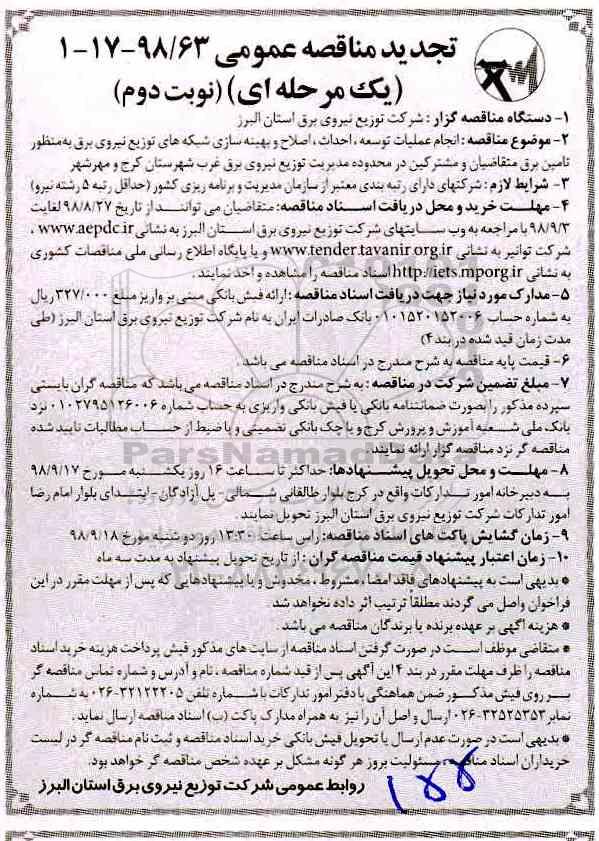 تجدید مناقصه عمومی ۹۸/۶۳-۱۷-۱
(یک مرحله ای) (نوبت دوم)
۱- دستگاه مناقصه گزار : شرکت توزیع نیروی برق استان البرز
۲- موضوع مناقصه : انجام عملیات توسعه ، احداث ، اصلاح و بهینه سازی شبکه های توزیع نیروی برق به منظور
تامین برق متقاضیان و مشترکین در محدوده مدیریت توزیع نیروی برق غرب شهرستان کرج و مهرشهر
۳- شرایط لازم : شرکتهای دارای رتبه بندی معتبر از سازمان مدیریت و برنامه ریزی کشور (حداقل رتبه ۵ رشته نیرو)
۴- مهلت خرید و محل دریافت اسناد مناقصه : متقاضیان می توانند از تاریخ ۹۸/۸/۲۷ لغایت
۹۸/۹/۳ با مراجعه به وب سایتهای شرکت توزیع نیروی برق استان البرز به نشانی www.aepdc.ir ،
شرکت توانیر به نشانی www.tender.tavanir.org.ir و یا پایگاه اطلاع رسانی ملی مناقصات کشوری
به نشانی http://iets.mporg.ir اسناد مناقصه را مشاهده و اخذ نمایند .
۵- مدارک مورد نیاز جهت دریافت اسناد مناقصه : ارائه فیش بانکی مبنی بر واریز مبلغ ۳۲۷/۰۰۰ ریال
به شماره حساب ۰۱۰۱۵۲۰۱۵۲۰۰۶ بانک صادرات ایران به نام شرکت توزیع نیروی برق استان البرز (طی
مدت زمان قید شده در بند ۴)
۶- قیمت پایه مناقصه به شرح مندرج در اسناد مناقصه می باشد .
۷- مبلغ تضمین شرکت در مناقصه : به شرح مندرج در اسناد مناقصه می باشد که مناقصه گران بایستی
سپرده مذکور را بصورت ضمانتنامه بانکی یا فیش بانکی واریزی به حساب شماره ۰۱۰۲۷۹۵۱۲۶۰۰۶ نزد
بانک ملی شعبه آموزش و پرورش کرج و یا چک بانکی تضمینی و یا ضبط از حساب مطالبات تایید شده
مناقصه گر نزد مناقصه گزار ارائه نمایند .
۸- مهلت و محل تحویل پیشنهادها: حداکثر تا ساعت ۱۶ روز یکشنبه مورخ ۹۸/۹/۱۷
به دبیرخانه امور تدارکات واقع در کرج بلوار طالقانی شمالی - پل آزادگان - ابتدای بلوار امام رضا
امور تدارکات شرکت توزیع نیروی برق استان البرز تحویل نمایند .
۹- زمان گشایش پاکت های اسناد مناقصه: راس ساعت ۱۳:۳۰ روز دو شنبه مورخ ۹۸/۹/۱۸
۱۰- زمان اعتبار پیشنهاد قیمت مناقصه گران : از تاریخ تحویل پیشنهاد به مدت سه ماه
* بدیهی است به پیشنهادهای فاقد امضاء ، مشروط ، مخدوش و یا پیشنهادهایی که پس از مهلت مقرر در این
فراخوان واصل می گردند مطلقاً ترتیب اثر داده نخواهد شد
* هزینه آگهی بر عهده برنده یا برندگان مناقصه می باشد .
* متقاضی موظف است در صورت گرفتن اسناد مناقصه از سایت های مذکور فیش پرداخت هزینه خرید اسناد
مناقصه را ظرف مهلت مقرر در بند ۴ این آگهی پس از قید شماره مناقصه ، نام و آدرس و شماره تماس مناقصه گر
بر روی فیش مذکور ضمن هماهنگی با دفتر امور تدارکات با شماره تلفن ۳۲۱۲۲۲۰۵-۰۲۶ به شماره
نمابر ۳۲۵۲۵۳۵۳-۰۲۶ ارسال و اصل آن را نیز به همراه مدارک پاکت (ب) اسناد مناقصه ارسال نماید .
* بدیهی است در صورت عدم ارسال یا تحویل فیش بانکی خرید اسناد مناقصه و ثبت نام مناقصه گر در لیست
خریداران اسناد مناقصه ، مسئولیت بروز هر گونه مشکل بر عهده شخص مناقصه گر خواهد بود.
روابط عمومی شرکت توزیع نیروی برق استان البرز
ParsNamad